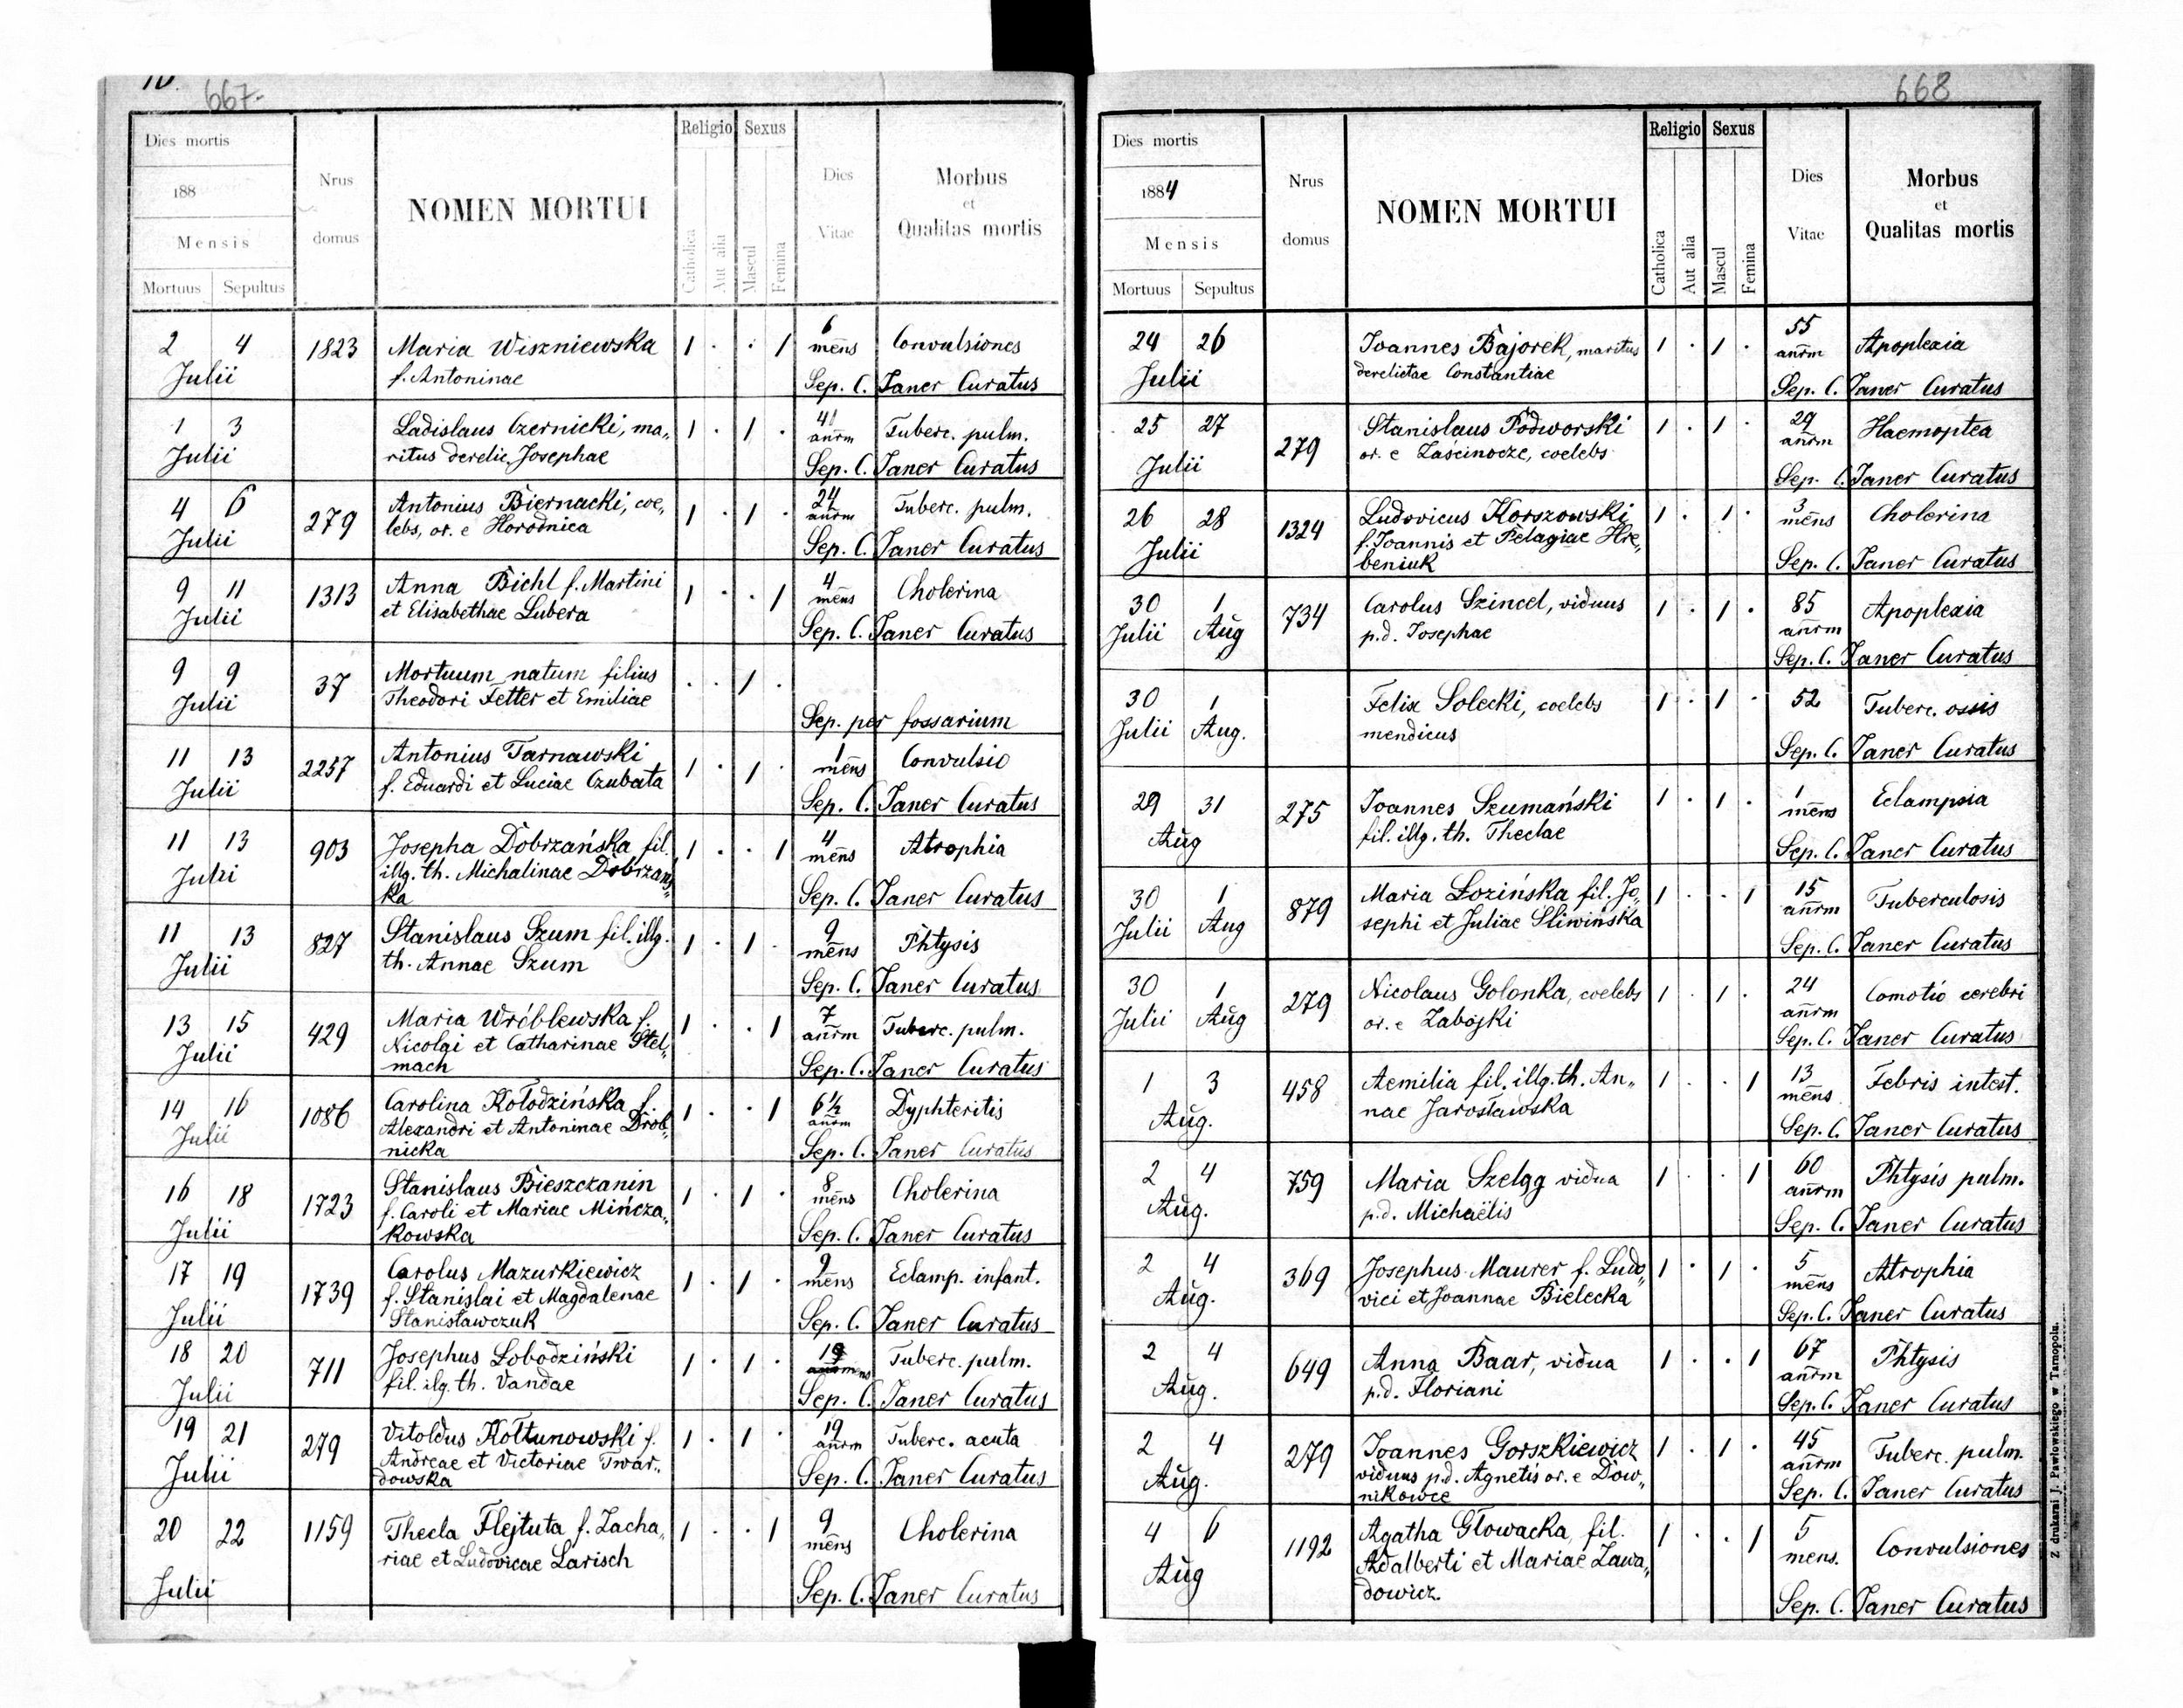 10.
667.
Dies mortis
188
Mensis
Mortuus Sepultus
Nrus
domus
NOMEN MORTUI
Religio
Catholica
Aut alia
Sexus
Mascul
Femina
Dies
Vitae
Morbus
et
Qualitas mortis
2 4 1823 Maria Wiszniewska 1 . . 1 6 mens Convulsiones
Julii f. Antoninae Sep. C. Janer Curatus
1 3 Ladislaus Czernicki, ma„ 1 . 1 . 41 anrm Tuberc. pulm.
Julii ritus derelic. Josephae Sep. C. Janer Curatus
4 6 279 Antonius Biernacki, coe„ 1 . 1 . 24 anrm Tuberc. pulm.
Julii lebs, or. e Horodnica Sep. C. Janer Curatus
9 11 1313 Anna Bichl f. Martini 1 . . 1 4 mens Cholerina
Julii et Elisabethae Lubera Sep. C. Janer Curatus
9 9 37 Mortuum natum filius . . 1 .
Julii Theodori Fetter et Emiliae Sep. per fossarium
11 13 2257 Antonius Tarnawski 1 . 1 . 1 mens Convulsio
Julii f. Eduardi et Luciae Czubata Sep. C. Janer Curatus
11 13 903 Josepha Dobrzańska fil. 1 . . 1 4 mens Atrophia
Julii illg. th. Michalinae Dobrzań„
ka Sep. C. Janer Curatus
11 13 827 Stanislaus Szum fil. illg. 1 . 1 . 9 mens Phtysis
Julii th. Annae Szum Sep. C. Janer Curatus
13 15 429 Maria Wróblewska f. 1 . . 1 7 anrm Tuberc. pulm.
Julii Nicolai et Catharinae Stel„
mach Sep. C. Janer Curatus
14 16 1086 Carolina Kołodzińska f. 1 . . 1 6½ anrm Dyphteritis
Julii Alexandri et Antoninae Drob„
nicka Sep. C. Janer Curatus
16 18 1723 Stanislaus Bieszczanin 1 . 1 . 8 mens Cholerina
Julii f. Caroli et Mariae Mińcza„
kowska Sep. C. Janer Curatus
17 19 1739 Carolus Mazurkiewicz 1 . 1 . 9 mens Eclamp. infant.
Julii f. Stanislai et Magdalenae
Stanisławczuk Sep. C. Janer Curatus
18 20 711 Josephus Łobodziński 1 . 1 . mens Tuberc. pulm.
Julii fil. ilg. th. Vandae Sep. C. Janer Curatus
19 21 279 Vitoldus Kołtunowski f. 1 . 1 . 19 anrm Tuberc. acuta
Julii Andreae et Victoriae Twar„
dowska Sep. C. Janer Curatus
20 22 1159 Thecla Flejtuta f. Zacha„ 1 . . 1 9 mens Cholerina
riae et Ludovicae Larisch
Julii Sep. C. Janer Curatus
668
Dies mortis
1884
Mensis
Mortuus Sepultus
Nrus
domus
NOMEN MORTUI
Religio
Catholica
Aut alia
Sexus
Mascul
Femina
Dies
Vitae
Morbus
et
Qualitas mortis
24 26 Joannes Bajorek, maritus 1 . 1 . 55 anrm Apoplexia
Julii derelictae Constantiae Sep. C. Janer Curatus
25 27 279 Stanislaus Podworski 1 . 1 . 29 anrm Haemoptea
Julii or. e Zaścinocze, coelebs Sep. C. Janer Curatus
26 28 1324 Ludovicus Korszowski 1 . 1 . 3 mens Cholerina
Julii f. Joannis et Pelagiae Hre„
beniuk Sep. C. Janer Curatus
30 1 734 Carolus Szincel, viduus 1 . 1 . 85 anrm Apoplexia
Julii Aug p.d. Josephae Sep. C. Janer Curatus
30 1 Felix Solecki, coelebs 1 . 1 . 52 Tuberc. ossis
Julii Aug. mendicus Sep. C. Janer Curatus
29 31 275 Joannes Szumański 1 . 1 . 1 mens Eclampsia
Aug fil. illg. th. Theclae Sep. C. Janer Curatus
30 1 879 Maria Łozińska fil. Jo„ 1 . . 1 15 anrm Tuberculosis
Julii Aug sephi et Juliae Sliwińska Sep. C. Janer Curatus
30 1 279 Nicolaus Golonka, coelebs 1 . 1 . 24 anrm Comotio cerebri
Julii Aug or. e Zabojki Sep. C. Janer Curatus
1 3 458 Aemilia fil. illg. th. An„ 1 . . 1 13 mens Febris intest.
Aug. nae Jarosławska Sep. C. Janer Curatus
2 4 759 Maria Szeląg vidua 1 . . 1 60 anrm Phtysis pulm.
Aug. p.d. Michaëlis Sep. C. Janer Curatus
2 4 369 Josephus Maurer f. Ludo„ 1 . 1 . 5 mens Atrophia
Aug. vici et Joannae Bielecka Sep. C. Janer Curatus
2 4 649 Anna Baar, vidua 1 . . 1 67 anrm Phtysis
Aug. p.d. Floriani Sep. C. Janer Curatus
2 4 279 Joannes Gorszkiewicz 1 . 1 . 45 anrm Tuberc. pulm.
Aug. viduus p.d. Agnetis or. e Dow„
nikowce Sep. C. Janer Curatus
4 6 1192 Agatha Głowacka, fil. 1 . . 1 5 mens. Convulsiones
Aug Adalberti et Mariae Zawa„
dowicz. Sep. C. Janer Curatus
Z drukarni J. Pawłowskiego w Tarnopolu.